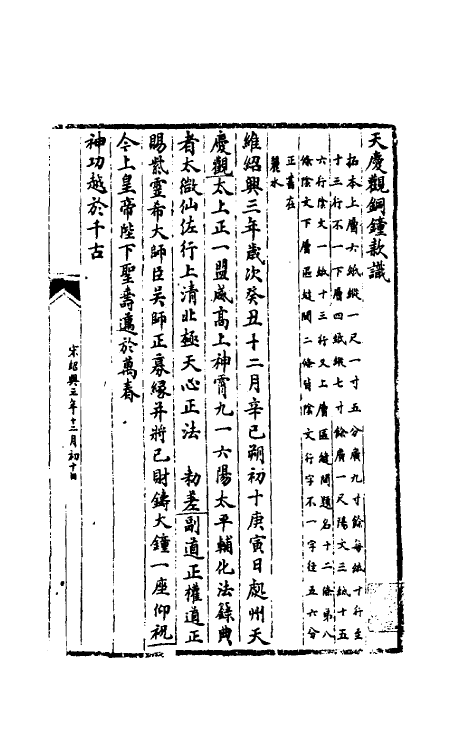 天慶觀銅鐘款識
拓本上層六紙縱一尺一寸五分廣九寸餘每紙十行至
十三行不一下層四紙縱七寸餘廣一尺陽文三紙十五
六行陰文一紙十三行又上層區縫間題名十二條第八
條陰文下層區縫間二條皆陰文行字不一字徑五六分
正書在
麗水
維紹興三年歲次癸丑十二月辛巳朔初十庚寅日處州天
慶觀太上正一盟威高上神霄九一六陽太平輔化法籙典
者太微仙佐行上清北極天心正法 勑差副道正權道正
賜紫靈希大師臣吳師正募緣并將己財鑄大鐘一座仰祝
今上皇帝陛下聖壽邁於萬春
神功越於千古
宋紹興三年十二月初十日